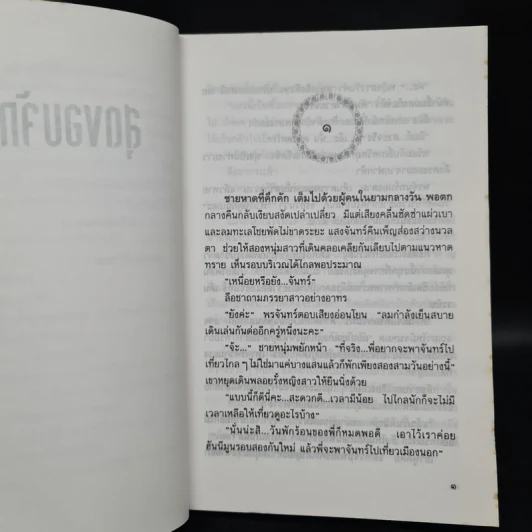 ๑
ชายหาดที่คึกคัก เต็มไปด้วยผู้คนในยามกลางวัน พอตก
กลางคืนกลับเงียบสงัดเปล่าเปลี่ยว มีแต่เสียงคลื่นซัดซ่าแผ่วเบา
และลมทะเลโชยพัดไม่ขาดระยะ แสงจันทร์คืนเพ็ญส่องสว่างนวล
ตา ช่วยให้สองหนุ่มสาวที่เดินคลอเคลียกันเลียบไปตามแนวหาด
ทราย เห็นรอบบริเวณได้ไกลพอประมาณ
"เหนื่อยหรือยัง...จันทร์"
ลือชาถามภรรยาสาวอย่างอาทร
"ยังค่ะ" พรจันทร์ตอบเสียงอ่อนโยน "ลมกำลังเย็นสบาย
เดินเล่นกันต่ออีกครู่หนึ่งนะคะ"
"จ้ะ..." ชายหนุ่มพยักหน้า "ที่จริง...พี่อยากจะพาจันทร์ไป
เที่ยวไกลๆ ไม่ใช่มาแค่บางแสนแล้วก็พักเพียงสองสามวันอย่างนี้"
เขาหยุดเดินพลอยรั้งหญิงสาวให้ยืนนิ่งด้วย
"แบบนี้ก็ดีนี่คะ...สะดวกดี...เวลามีน้อย ไปไกลนักก็จะไม่มี
เวลาเหลือให้เที่ยวดูอะไรบ้าง"
"นั่นน่ะสิ...วันพักร้อนของพี่ก็หมดพอดี เอาไว้เราค่อย
ฮันนีมูนรอบสองกันใหม่ แล้วพี่จะพาจันทร์ไปเที่ยวเมืองนอก"
๑